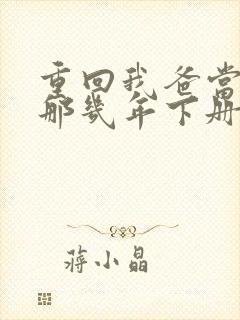 重回我爸当
那几年下册
蒋小晶